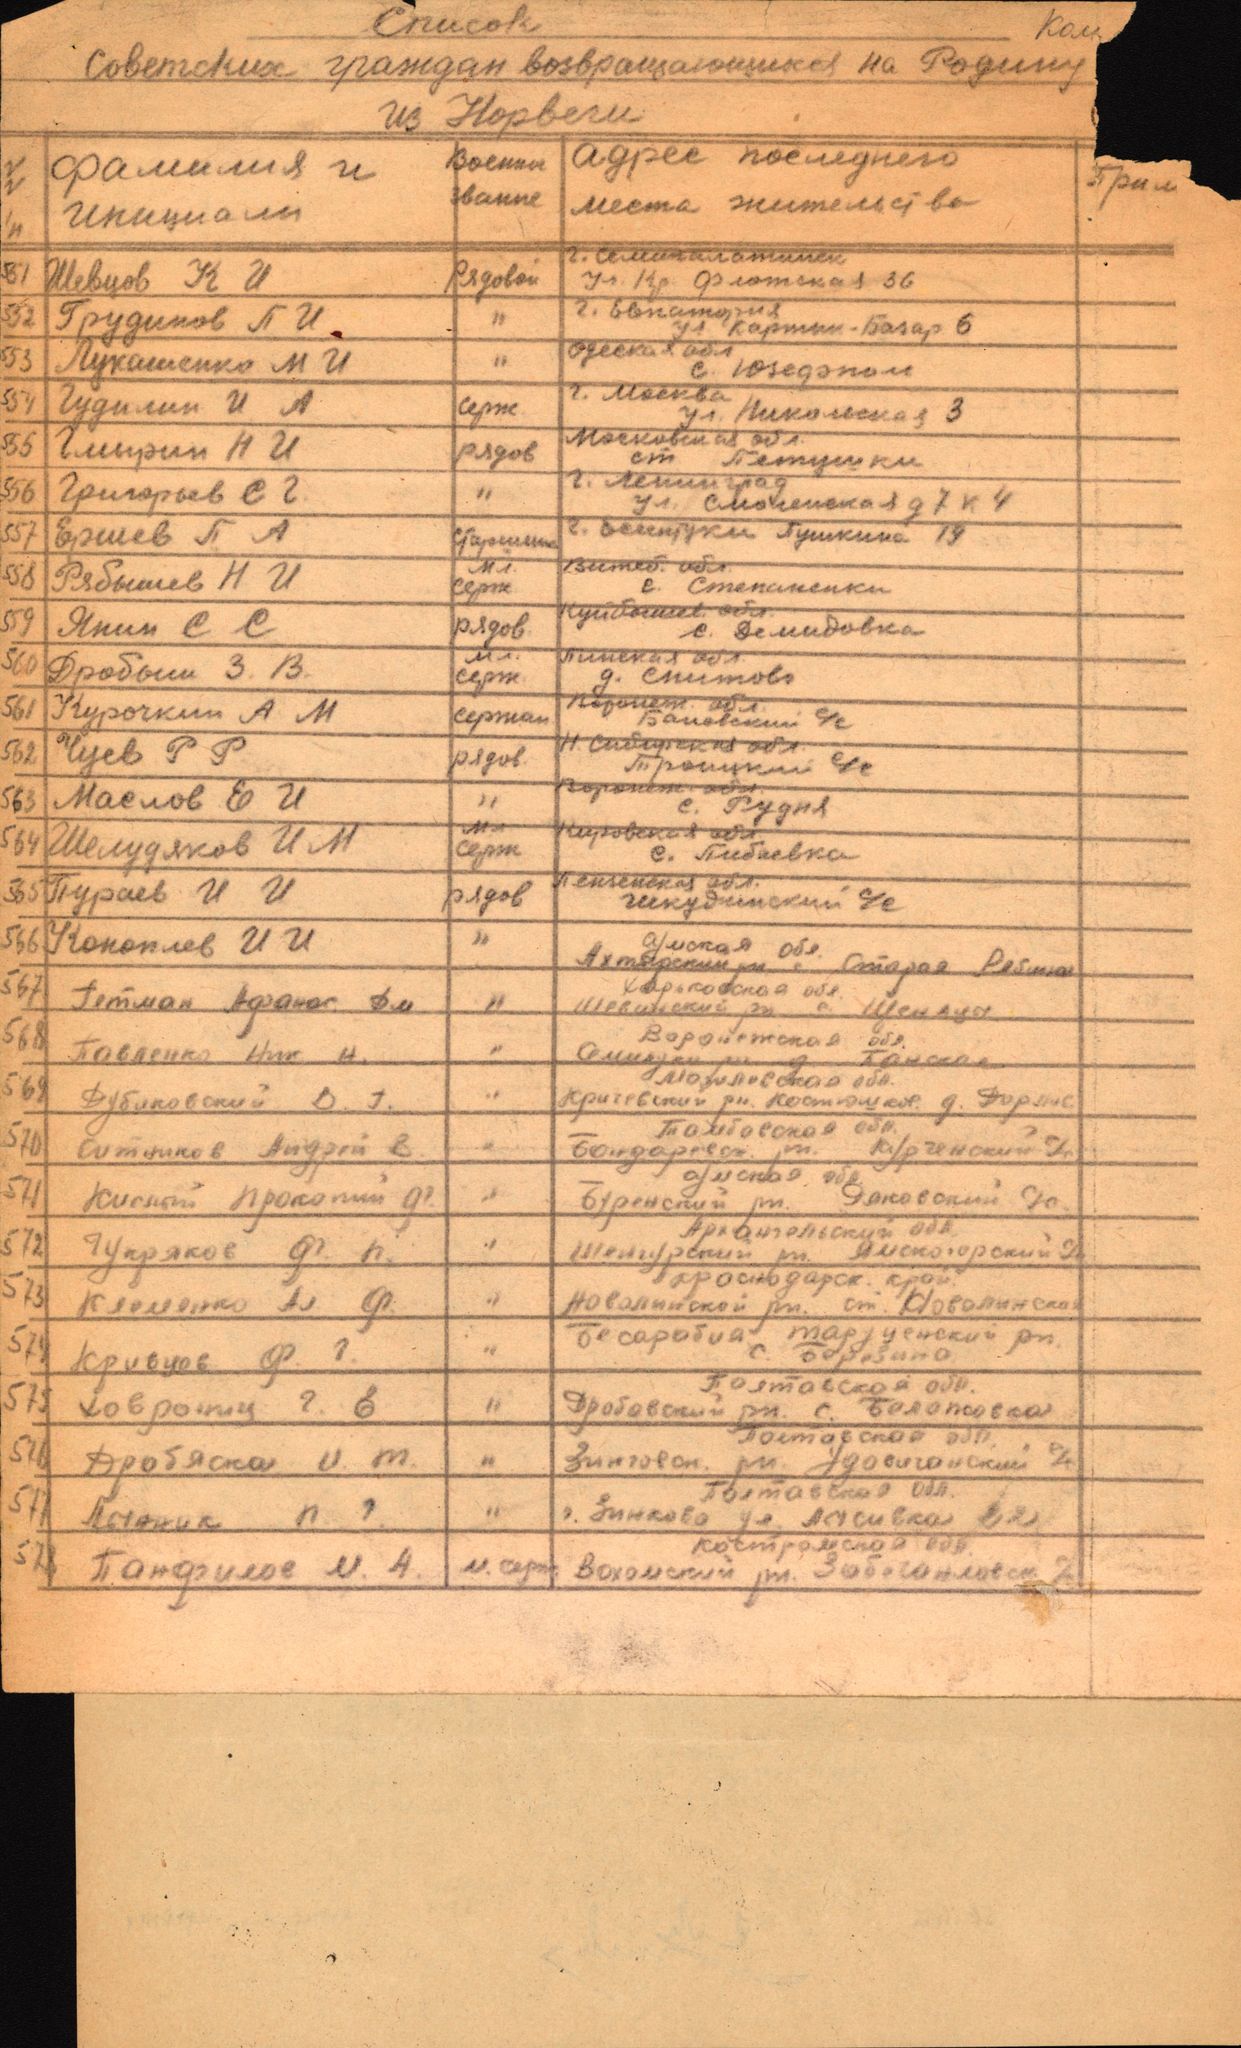 Список
Ком
Советских граждан возвращающихся на Родину
из Норвеги
Фамилия и инициали
Военны звание
Адрес последнего места жительства
Прим
551 Шевцов К И Рядовой г. Семипалатинск
ул. Кр. Флотская 36
552 Грудинов П И " г. Евпатория
ул Картин-Базар 6
553 Лукашенко М И " Одеская обл
с. Юзефпол
554 Гудилин И А серж. г. Москва
ул. Никольская 3
555 Гмырин Н И рядов Московская обл.
ст Петушки
556 Григорьев С Г. " г. Ленинград
ул. Смоленская д 7 к 4
557 Ершев П А старшина г. Есентуки Пушкина 19
558 Рябышев Н И мл. серж Витеб. обл.
с. Степаненки
559 Янин С С рядов. Куйбышев. обл.
с. Демидовка
560 Дробыш З. В. мл. серж. Пинская обл.
д. Снитово
561 Курочкин А М сержан Воронеж. обл.
с/с
562 Чуев Р Р рядов. Н. Сибирская обл.
Троицкий с/с
563 Маслов Е И " Воронеж. обл.
с. Рудня
564 Шелудяков И М мл серж Кировская обл.
с.
565 Пураев И И рядов Пензенская обл.
с/с
566 Коноплев И И " Сумская обл.
Ахтырский рн с Старая Рябина
567 Гетман Афанас. Дм " Харьковская обл.
рн с.
568 Павленко Ник Н. " Воронежская обл.
рн. д.
569 Дубиковский В. Г. " Могилевская обл.
Кричевский рн. д.
570 Ситников Андрей В. " Тамбовская обл.
Бондаревск. рн. с/с
571 Кислый Прокопий Ф. " Сумская обл.
Буренский рн. с/с.
572 Чукряков Ф. П. " Архангельский обл.
Шенкурский рн. Ямскогорский с/с
573 Клеменко Ал Ф. " Краснодарск. край.
рн. ст.
574 Кривцов Ф. Г. " Бесарабия рн.
с. Березино
575 Г. Е " Полтавской обл.
Дробовский рн. с.
576 Дробязка И. Т. " Полтавская обл.
рн. с/с
577 П. Г. " Полтавская обл.
г. Зинково ул
578 Панфилов М. А. м. серж Костромская обл.
Вохомский рн. с/с